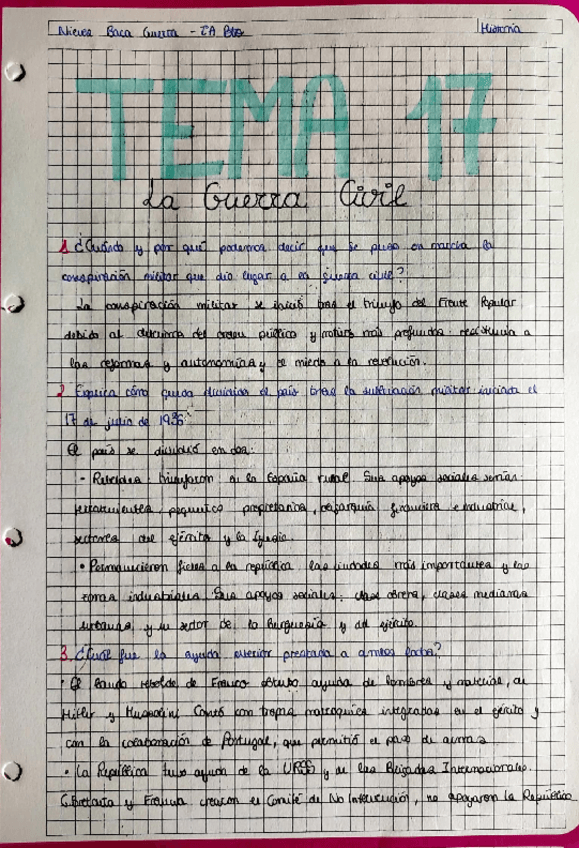 Nieves Baca Guerra - 2ºA Bto
Historia
TEMA 17
La Guerra Civil
1 ¿Cuándo y por qué podemos decir que se puso en marcha la
conspiración militar que dio lugar a la guerra civil?
La conspiración militar se inició tras el triunfo del Frente Popular
debido al deterioro del orden público y motivos más profundos: resistencia a
las reformas y autonomías y el miedo a la revolución.
2 Explica cómo queda dividido el país tras la sublevación militar iniciada el
17 de julio de 1936
El país se dividió en dos:
- Rebeldes: triunfaron en la España rural. Sus apoyos sociales serían:
terratenientes, pequeños propietarios, oligarquía financiera e industrial,
sectores del ejército y la Iglesia.
• Permanecieron fieles a la república las ciudades más importantes y las
zonas industriales. Sus apoyos sociales: clase obrera, clases medianas
urbanas, y un sector de la burguesía y del ejército.
3. ¿Cuál fue la ayuda exterior prestada a ambos bandos?
• El bando rebelde de Franco obtuvo ayuda de hombres y material, de
Hitler y Mussolini. Contó con tropas marroquíes integradas en el ejército y
con la colaboración de Portugal, que permitió el paso de armas
• La República tuvo ayuda de la URSS y de las Brigadas Internacionales.
G.Bretaña y Francia crearon el Comité de No Intervención, no apoyaron la República